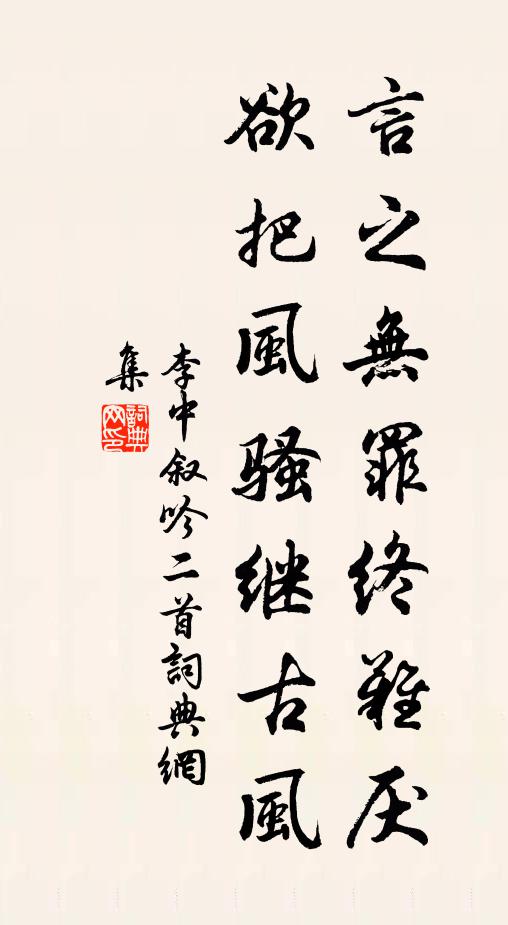 言之無罪終難厌
欲把風骚继古風
李中叙吟二首詞典網
集
詞典
网印